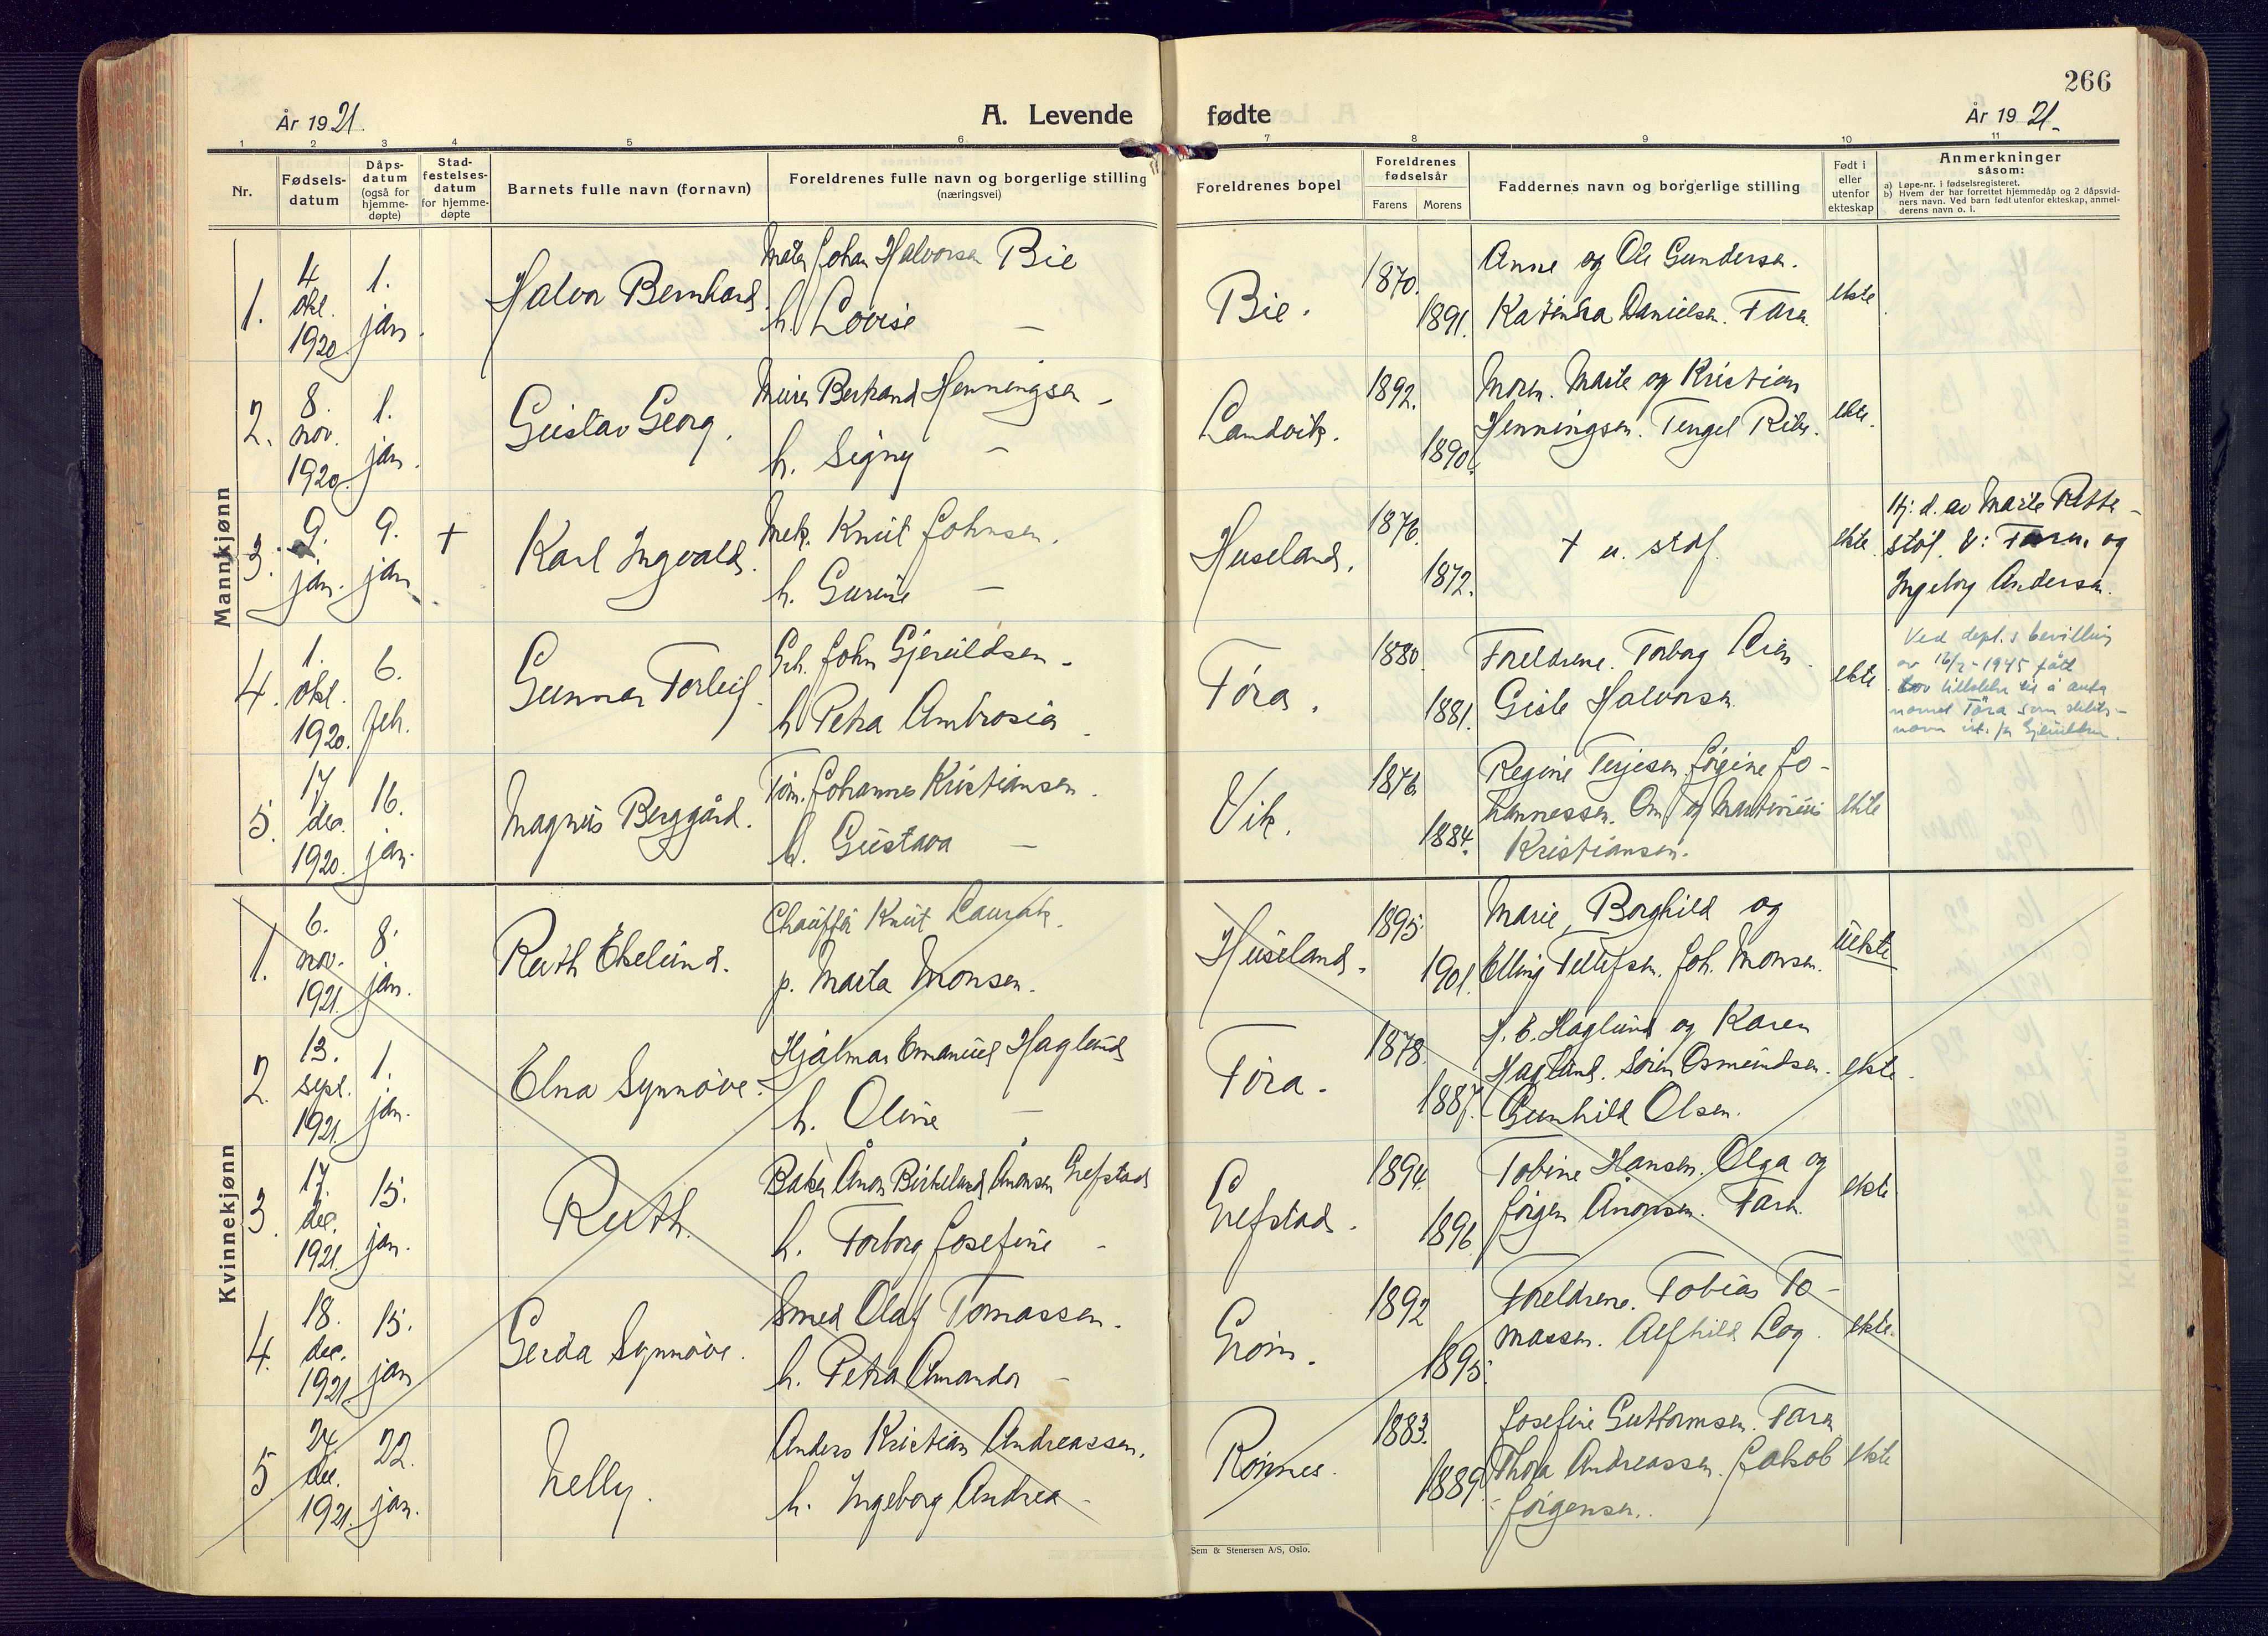 266
År 1921.
A. Levende fødte
År 1921.
1 2 3 4 5 6 7 8 9 10 11
Nr.
Fødsels-
datum
Dåps-
datum
(også for
hjemme-
døpte)
Stad-
festelses-
datum
for hjemme-
døpte
Barnets fulle navn (fornavn)
Foreldrenes fulle navn og borgerlige stilling
(næringsvei)
Foreldrenes bopel
Foreldrenes
fødselsår
Farens
Morens
Faddernes navn og borgerlige stilling
Født i
eller
utenfor
ekteskap
Anmerkninger
såsom:
a) Løpe-nr. i fødselsregisteret.
b) Hvem der har forrettet hjemmedåp og 2 dåpsvid-
ners navn. Ved barn født utenfor ekteskap, anmel-
derens navn o. l.
Mannkjønn
1.
4.
okt.
1920
1.
jan.
Halvor Bernhard
Maler Johan Halvorsen Bie
h. Lovise –
Bie.
1870.
1891.
Anne og Ole Gundersen.
Katinka Danielsen. Faren.
ekte
2.
8.
nov.
1920.
1.
jan.
Gustav Georg.
Murer Bertrand Henningsen –
h. Signy –
Landvik.
1892.
1890.
Moren. Marte og Kristian
Henningsen. Tengel Ribe.
ekte.
3.
9.
jan.
9.
jan.
+
Karl Ingvald.
Mek. Knut Johnsen.
h. Gurine –
Huseland.
1876.
1872.
+ u. stdf.
ekte
Hj: d. av Marie Rette-
støl. V: Faren og
Ingeborg Andersen.
4.
1.
okt.
1920.
6.
feb.
Gunnar Torleif.
Grh. John Gjeruldsen –
h. Petra Ambrosia
Töra.
1880.
1881.
Foreldrene. Torborg
Gisle Halvorsen.
ekte
Ved dept.s bevilling
av 16/2-1945 fått
tillatelse til å anta
navnet Töra som slekts-
navn ist. for Gjeruldsen.
5.
17
dec.
1920.
16.
jan.
Magnus Berggård.
Töm. Johannes Kristiansen.
h. Gustava –
Vik.
1876
1884.
Regine Terjesen Jörgine Jo-
hannessen. Om og Martinius
Kristiansen.
ekte
Kvinnekjønn
1.
6.
nov.
1921.
8.
jan.
Ruth Ekelund.
Chauffør Knut Laurak.
p. Marta Monsen.
Huseland.
1895.
1901.
Marie, Borghild og
Elling Tellefsen. Joh. Monsen.
uekte
2.
13.
sept.
1921.
1.
jan.
Elna Synnöve.
Hjalmar Emanuel Haglund
h. Oline –
Töra.
1878.
1887.
H. E. Haglund og Karen
Haglund. Sören Osmundsen.
Gunhild Olsen.
ekte.
3.
17.
dec.
1921.
15.
jan.
Ruth.
Baker Ånon Birkeland Ånonsen Grefstad
h. Torborg Josefine –
Grefstad.
1894.
1896.
Tobine Hansen. Olga og
Jörgen Ånonsen. Faren.
ekte
4.
18.
dec.
1921.
15.
jan
Gerda Synnöve.
Smed Olaf Tomassen.
h. Petra Amanda –
Gröm.
1892
1895.
Foreldrene. Tobias To-
massen. Alfhild Log.
ekte.
5
24
dec.
1921.
22.
jan.
Nelly.
Anders Kristian Andreassen.
h. Ingeborg Andrea –
Rönnes.
1883.
1889.
Josefine Guttormsen. Faren
Thora Andreassen. Jakob
Jörgensen.
ekte
Sem & Stenersen A/S, Oslo.